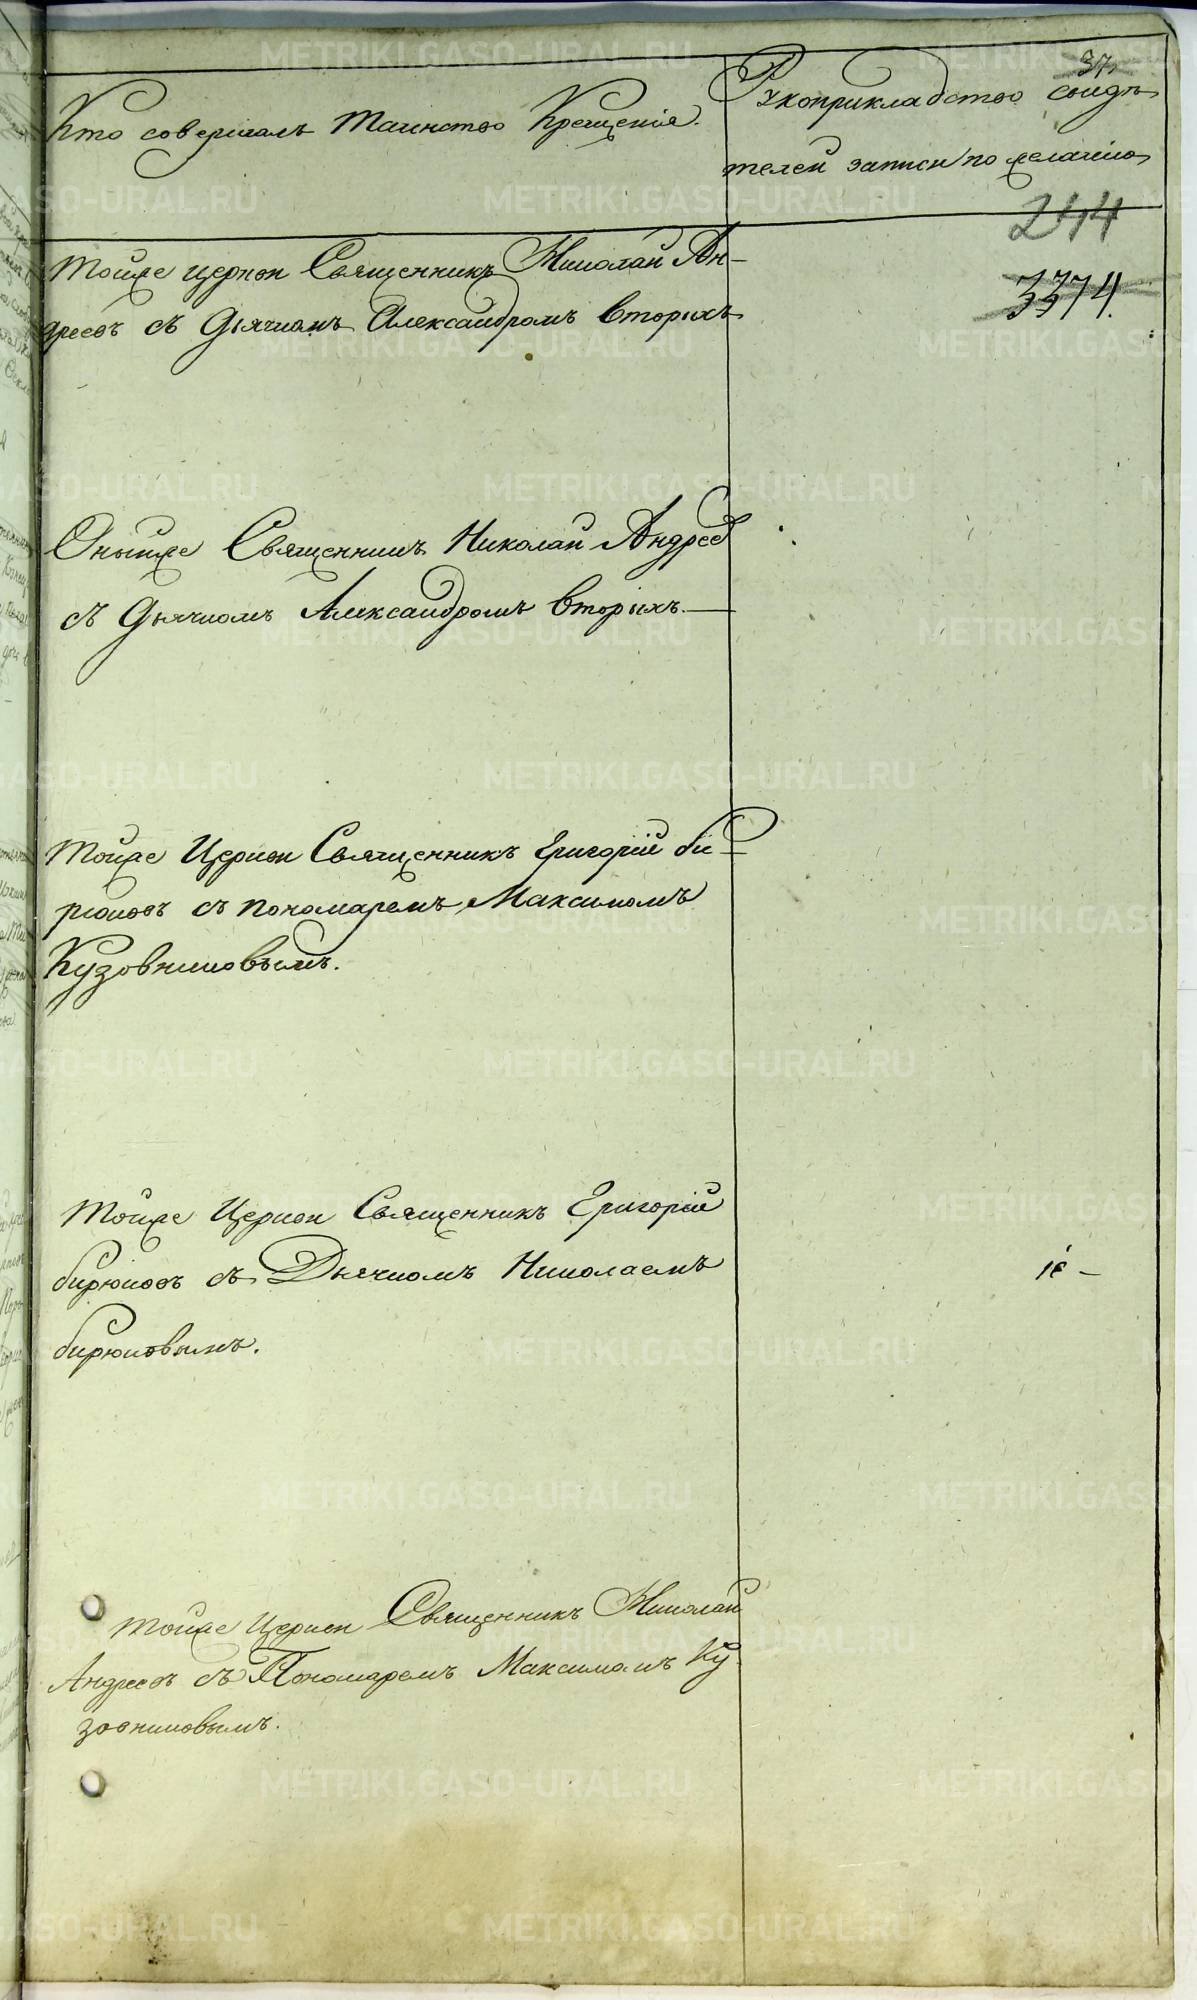 37.
Кто совершалъ Таинство Крещенія.
Рукоприкладство свидѣ
телей записи по желанію
244
3374.
Тойже церкви Священникъ Николай Ан-
дреевъ съ Дьячкомъ Александромъ Вторыхъ
Оныйже Священникъ Николай Андреев
съ Дьячкомъ Александромъ Вторыхъ.—
Тойже Церкви Священникъ Григорій Би-
рюковъ съ пономаремъ Максимомъ
Кузовниковымъ.
Тойже Церкви Священникъ Григорій
Бирюковъ съ Дьячкомъ Николаемъ
Бирюковымъ.
Тойже Церкви Священникъ Николай
Андреевъ съ Пономаремъ Максимомъ Ку
зовниковымъ.
METRIKI.GASO-URAL.RU